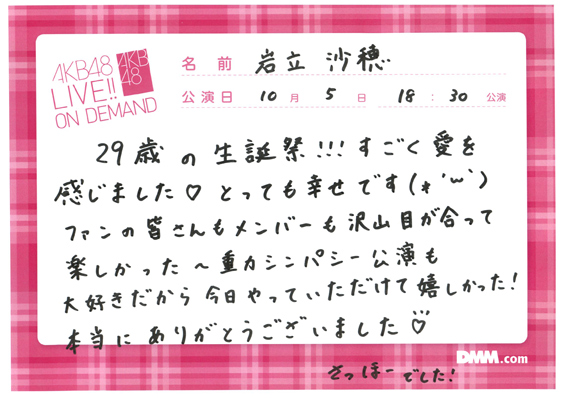 AKB48
LIVE!!
ON DEMAND
AKB
48
名前 岩立 沙穂
公演日 10月 5日 18:30公演
29歳の生誕祭!!!すごく愛を
感じました♡とっても幸せです(*'ω'`)
ファンの皆さんもメンバーも沢山目が合って
楽しかった〜重力シンパシー公演も
大好きだから今日やっていただけて嬉しかった!
本当にありがとうございました♡
DMM.com
さっほーでした!